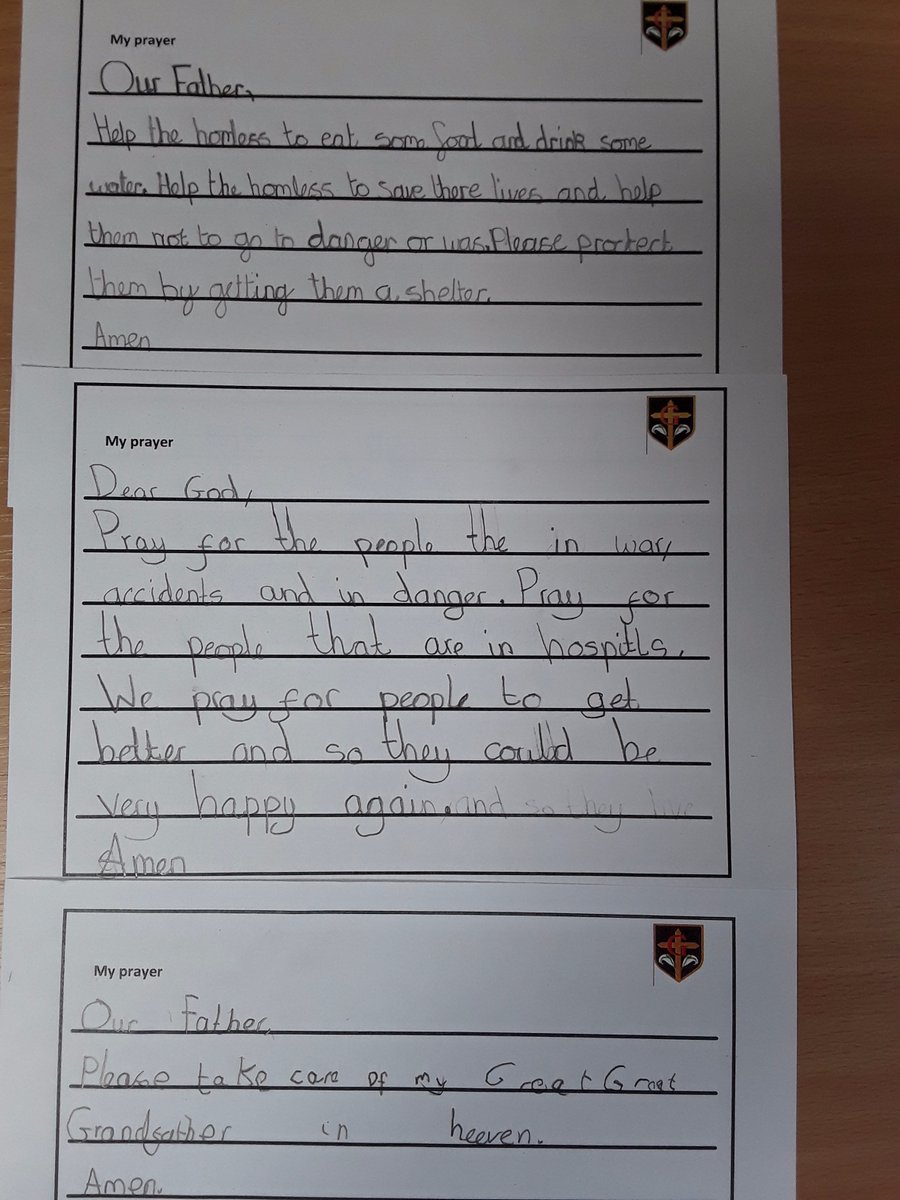 My prayer
Our Father,
Help the homless to eat som food and drink some
water. Help the homless to save there lives and help
them not to go to danger or was. Please prortect
them by getting them a shelter.
Amen
My prayer
Dear God,
Pray for the people the in war,
accidents and in danger. Pray for
the people that are in hospitls.
We pray for people to get
better and so they could be
very happy again. and so they live
Amen
My prayer
Our Father,
Please take care of my Great Great
Grandfather in heeven.
Amen.